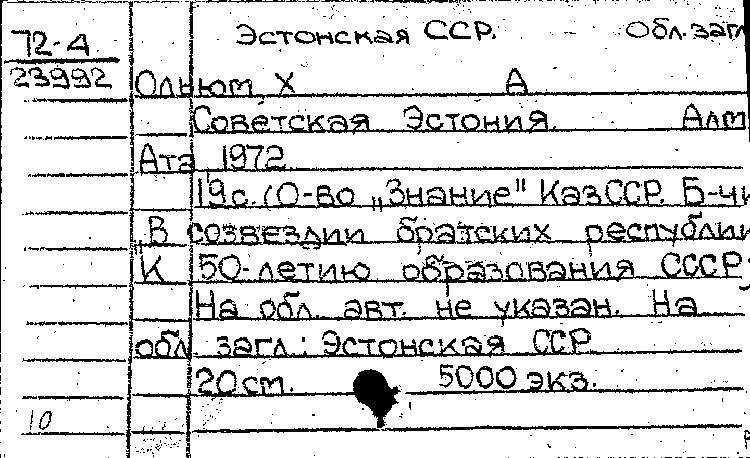 72-4
23992
Эстонская ССР. Обл. загл
Ольюм, Х А
Советская Эстония. Алм
Ата 1972
19 с. (О-во „Знание" КазССР. Б-чк
„В созвездии братских республик
К 50-летию образования СССР;
На обл. авт. не указан. На
обл. загл.: Эстонская ССР.
20 см. 5000 экз.
10